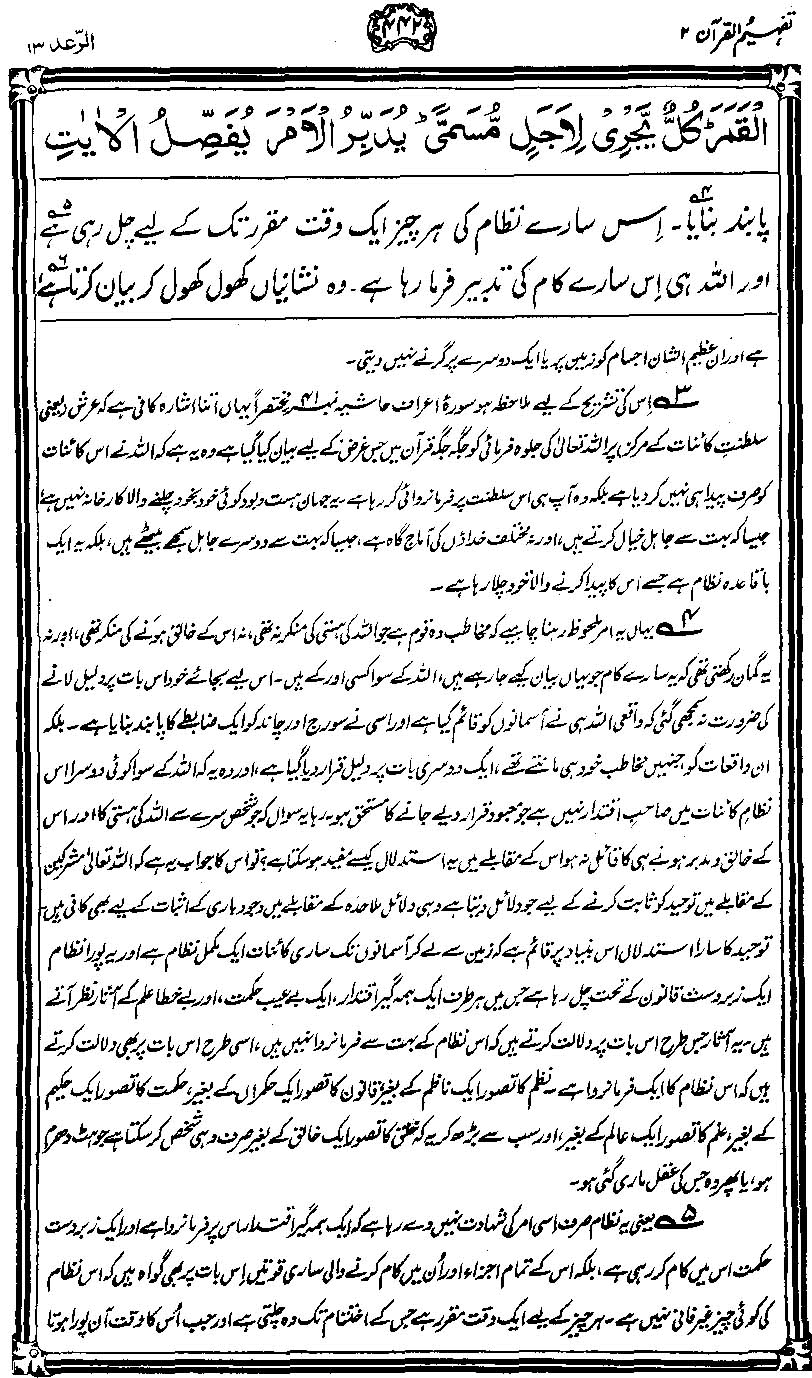 تفہیم القرآن ۲
۴۴۲
الرّعد ۱۳
الْقَمَرَ ؕ كُلٌّ يَّجْرِيْ لِاَجَلٍ مُّسَمًّى ؕ يُدَبِّرُ الْاَمْرَ يُفَصِّلُ الْاٰيٰتِ
پابند بنایا۔ ۴؎ اِس سارے نظام کی ہر چیز ایک وقت مقرر تک کے لیے چل رہی ہے ۵؎
اور اللہ ہی اِس سارے کام کی تدبیر فرما رہا ہے۔ وہ نشانیاں کھول کھول کر بیان کرتا ہے ۶؎،
ہے اور ان عظیم الشان اجسام کو زمین پر یا ایک دوسرے پر گرنے نہیں دیتی۔
۳؎ اِس کی تشریح کے لیے ملاحظہ ہو سورۂ اعراف حاشیہ نمبر ۴۱۔ مختصراً یہاں اتنا اشارہ کافی ہے کہ عرش (یعنی
سلطنتِ کائنات کے مرکز) پر اللہ تعالیٰ کی جلوہ فرمائی کو جگہ جگہ قرآن میں جس غرض کے لیے بیان کیا گیا ہے وہ یہ ہے کہ اللہ نے اس کائنات
کو صرف پیدا ہی نہیں کر دیا ہے بلکہ وہ آپ ہی اس سلطنت پر فرمانروائی کر رہا ہے۔ یہ جہانِ ہست و بود کوئی خود بخود چلنے والا کارخانہ نہیں ہے،
جیسا کہ بہت سے جاہل خیال کرتے ہیں، اور نہ مختلف خداؤں کی آماج گاہ ہے، جیسا کہ بہت سے دوسرے جاہل سمجھے بیٹھے ہیں، بلکہ یہ ایک
باقاعدہ نظام ہے جسے اس کا پیدا کرنے والا خود چلا رہا ہے۔
۴؎ یہاں یہ امر ملحوظ رہنا چاہیے کہ مخاطب وہ قوم ہے جو اللہ کی ہستی کی منکر نہ تھی، نہ اس کے خالق ہونے کی منکر تھی، اور نہ
یہ گمان رکھتی تھی کہ یہ سارے کام جو یہاں بیان کیے جا رہے ہیں، اللہ کے سوا کسی اور کے ہیں۔ اس لیے بجائے خود اس بات پر دلیل لانے
کی ضرورت نہ سمجھی گئی کہ واقعی اللہ ہی نے آسمانوں کو قائم کیا ہے اور اسی نے سورج اور چاند کو ایک ضابطے کا پابند بنایا ہے۔ بلکہ
ان واقعات کو، جنہیں مخاطب خود ہی مانتے تھے، ایک دوسری بات پر دلیل قرار دیا گیا ہے، اور وہ یہ کہ اللہ کے سوا کوئی دوسرا اس
نظامِ کائنات میں صاحبِ اقتدار نہیں ہے جو معبود قرار دیے جانے کا مستحق ہو۔ رہا یہ سوال کہ جو شخص سرے سے اللہ کی ہستی کا اور اس
کے خالق و مدبر ہونے ہی کا قائل نہ ہو اس کے مقابلے میں یہ استدلال کیسے مفید ہو سکتا ہے؟ تو اس کا جواب یہ ہے کہ اللہ تعالیٰ مشرکین
کے مقابلے میں توحید کو ثابت کرنے کے لیے جو دلائل دیتا ہے وہی دلائل ملاحدہ کے مقابلے میں وجودِ باری کے اثبات کے لیے بھی کافی ہیں۔
توحید کا سارا استدلال اس بنیاد پر قائم ہے کہ زمین سے لے کر آسمانوں تک ساری کائنات ایک مکمل نظام ہے اور یہ پورا نظام
ایک زبردست قانون کے تحت چل رہا ہے جس میں ہر طرف ایک ہمہ گیر اقتدار، ایک بے عیب حکمت، اور بے خطا علم کے آثار نظر آتے
ہیں۔ یہ آثار جس طرح اس بات پر دلالت کرتے ہیں کہ اس نظام کے بہت سے فرمانروا نہیں ہیں، اسی طرح اس بات پر بھی دلالت کرتے
ہیں کہ اس نظام کا ایک فرمانروا ہے۔ نظم کا تصور ایک ناظم کے بغیر، قانون کا تصور ایک حکمراں کے بغیر، حکمت کا تصور ایک حکیم
کے بغیر، علم کا تصور ایک عالم کے بغیر، اور سب سے بڑھ کر یہ کہ خلق کا تصور ایک خالق کے بغیر صرف وہی شخص کر سکتا ہے جو ہٹ دھرم
ہو، یا پھر وہ جس کی عقل ماری گئی ہو۔
۵؎ یعنی یہ نظام صرف اسی امر کی شہادت نہیں دے رہا ہے کہ ایک ہمہ گیر اقتدار اس پر فرمانروا ہے اور ایک زبردست
حکمت اس میں کام کر رہی ہے، بلکہ اس کے تمام اجزاء اور اُن میں کام کرنے والی ساری قوتیں اِس بات پر بھی گواہ ہیں کہ اس نظام
کی کوئی چیز غیر فانی نہیں ہے۔ ہر چیز کے لیے ایک وقت مقرر ہے جس کے اختتام تک وہ چلتی ہے اور جب اُس کا وقت آن پورا ہوتا